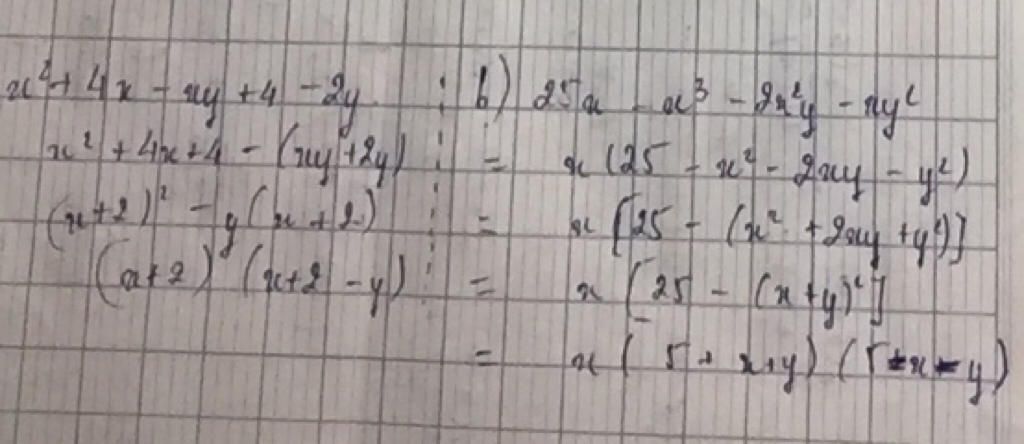 x² + 4x - xy + 4 - 2y
x² + 4x + 4 - (xy + 2y)
(x+2)² - y(x + 2)
(x+2) (x+2 - y)
b) 25x - x³ - 2x²y - xy²
= x (25 - x² - 2xy - y²)
= x [25 - (x² + 2xy + y²)]
= x [25 - (x + y)²]
= x ( 5 + x + y) (5 - x - y)